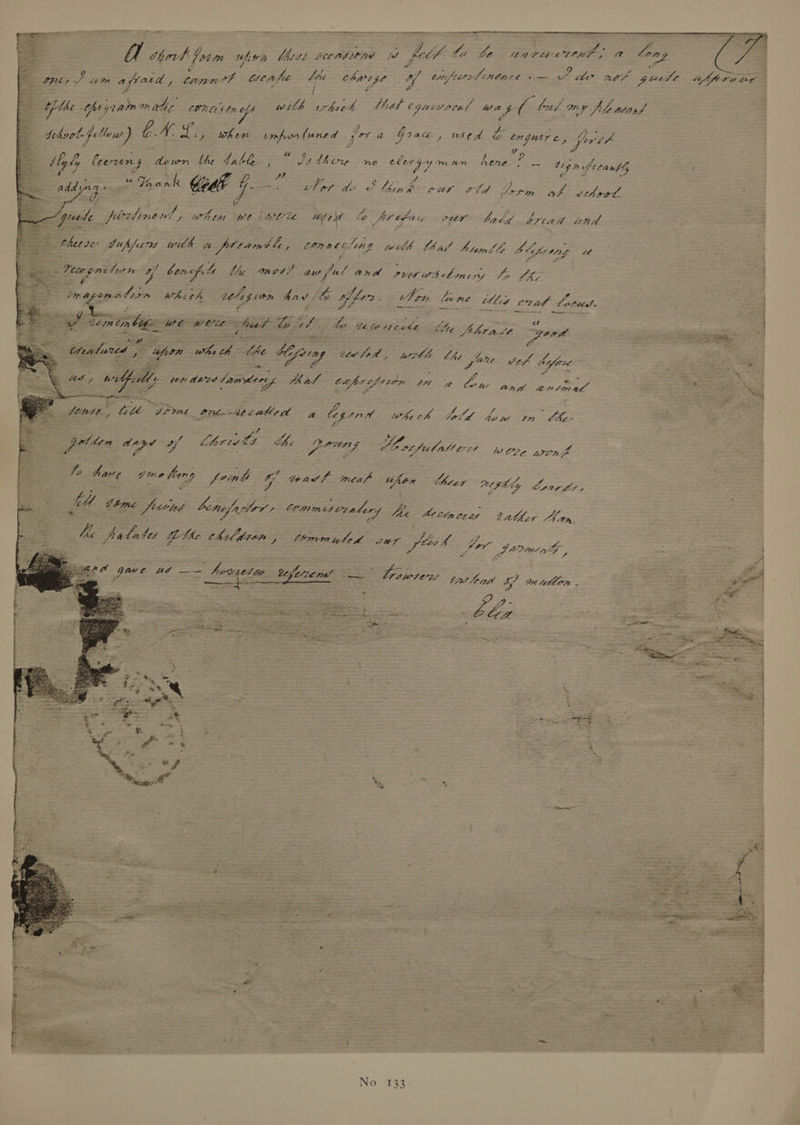 A short form upon these occasions is felt to be unreverent; a long (7
one, I am afraid, cannot escape the charge of impertinence. — I do not quite approve
of the epigrammatic conciseness with which that equivocal wag (but my pleasant
school-fellow) C.V.L., when importuned for a Grace, used to enquire, first
slyly leering down the table, "Is there no clergyman here"? — significantly
adding, "Thank G—". Nor do I think our old form at school
quite pertinent, when we were used to preface our bald bread and
cheese suppers with a preamble, connecting with that humble blessing a
recognition of benefits the most awful and overwhelming to the
imagination which religion has to offer. Non tunc illis erat locus.
I remember we were put to it to reconcile the phrase "good
creatures", upon which the blessing rested, with the fare set before
us, wilfully understanding that expression in a low and animal
sense, till some one recalled a legend which told how in the
golden days of Christ's the young Hospitallers were wont
to have smoking joints of roast meat upon their nightly boards,
till some pious benefactor, commiserating the decencies rather than
the palates of the children, commuted our flesh for garments,
and gave us —— horresco referens — trowsers instead of mutton.
Elia
No 133.